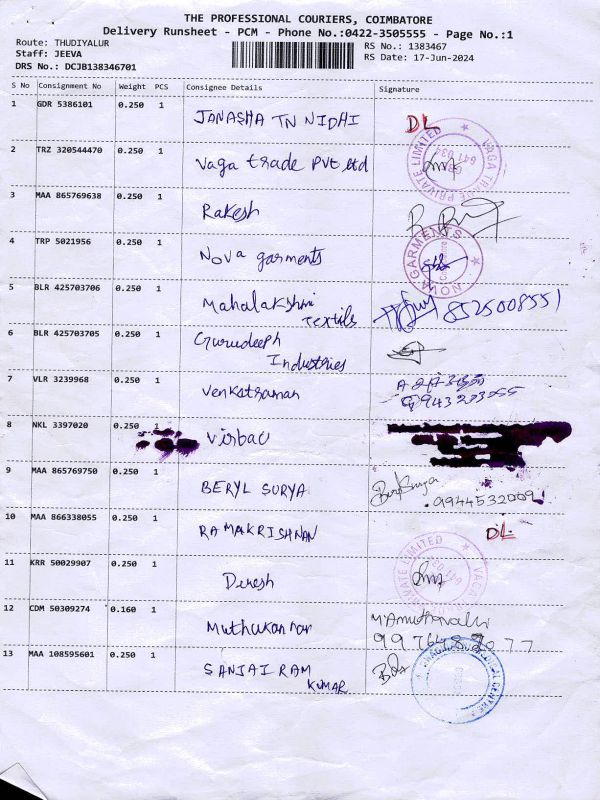 THE PROFESSIONAL COURIERS, COIMBATORE
Delivery Runsheet - PCM - Phone No.:0422-3505555 - Page No.:1
Route: THUDIYALUR
Staff: JEEVA
DRS No.: DCJB138346701
RS No.: 1383467
RS Date: 17-Jun-2024
S No Consignment No Weight PCS Consignee Details Signature
1 GDR 5386101 0.250 1 JANASHA TN NIDHI DL
2 TRZ 320544470 0.250 1 Vaga trade Pvt Ltd
VAGA TRADE PRIVATE LIMITED
641 034
3 MAA 865769638 0.250 1 Rakesh
4 TRP 5021956 0.250 1 Nova garments
NOVA GARMENTS
5 BLR 425703706 0.250 1 Mahalakshmi
Textils 8525008551
6 BLR 425703705 0.250 1 Gurudeeph
Industries
7 VLR 3239968 0.250 1 Venkatraman
8 NKL 3397020 0.250 1 Virbac
9 MAA 865769750 0.250 1 BERYL SURYA
9944532009
10 MAA 866338055 0.250 1 RAMAKRISHNAN DL
11 KRR 50029907 0.250 1 Dinesh
VAGA TRADE PRIVATE LIMITED
12 CDM 50309274 0.160 1 Muthukannan
13 MAA 108595601 0.250 1 SANJAI RAM
KUMAR